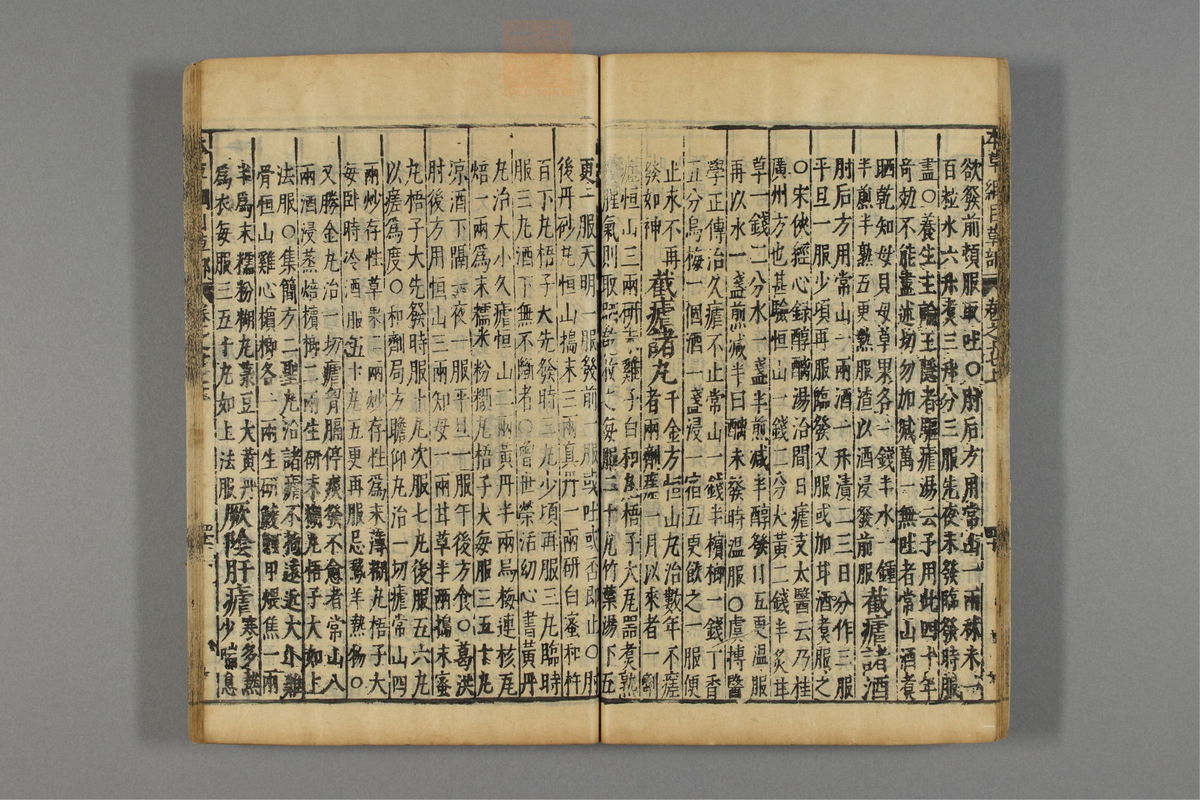 欲發前頓服取吐○肘后方用常山一兩秫米一
百粒水六升煮三升分三服先夜未發臨發時服
盡○養生主論王隱者驅瘧湯云予用此四十年
奇効不能盡述切勿加減萬一無吐者常山酒煮
晒乾知母貝母草果各一錢半水一鍾
半煎半熟五更熱服渣以酒浸發前服 截瘧諸酒
肘后方用常山一兩酒一升漬二三日分作三服
平旦一服少頃再服臨發又服或加甘酒煮服之
○宋俠經心錄醇醨湯治間日瘧支太醫云乃桂
廣州方也甚驗恒山一錢二分大黃二錢半炙甘
草一錢二分水一盞半煎減半醇發日五更溫服
再以水一盞煎減半曰醨未發時溫服○虞摶醫
學正傳治久瘧不止常山一錢半檳榔一錢丁香
五分烏梅一個酒一盞浸一宿五更飲之一服便
止永不再
發如神 截瘧諸丸 千金方恒山丸治數年不瘥
者兩劑瘥一月以來者一劑
瘥恒山三兩研末雞子白和丸梧子大瓦器煮熟
腥氣則取 每服二十丸竹葉湯下五
更一服天明一服發前一服或吐或否即止○肘
後丹砂丸恒山搗末三兩真丹一兩研白蜜和杵
百下丸梧子大先發時三丸少頃再服三丸臨時
服三丸酒下無不斷者○曾世榮治幼心書黃丹
丸治大小久瘧恒山三兩黃丹半兩烏梅連核瓦
焙一兩爲末糯米粉糊丸梧子大每服三五十丸
涼酒下隔一夜一服平旦一服午後方食○葛洪
肘後方用恒山三兩知母一兩甘草半兩搗末蜜
丸梧子大先發時服十丸次服七丸後服五六丸
以瘥爲度○和劑局方瞻仰丸治一切瘧常山四
兩炒存性草果二兩炒存性爲末薄糊丸梧子大
每卧時冷酒服五十丸五更再服忌鵝羊熱物○
又勝金丸治一切瘧胷膈停痰發不愈者常山八
兩酒浸蒸焙檳榔二兩生研末糊丸梧子大如上
法服○集簡方二聖丸治諸瘧不拘遠近大小雞
骨恒山雞心檳榔各一兩生研鯪鯉甲煨焦一兩
半爲末糯粉糊丸菉豆大黃丹
爲衣每服三五十丸如上法服 厥陰肝瘧 寒多熱
少喘息